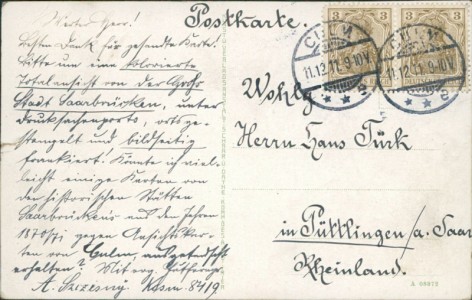 Postkarte.
Wertes Herr!
Besten Dank für gesandte Karte.
Bitte um eine kolorierte
Totalansicht von der Groß
Stadt Saarbrücken, unter
Drucksachenporto, ortsge-
stempelt und bildseitig
frankiert. Könnte ich viel-
leicht einige Karten von
den historischen Stätten
Saarbrückens aus den Jahren
1870/71 gegen Ansichtskar-
ten von Culm, ausgetauscht
erhalten? Mit erg.
A. Szczesny Kosm. 8419
3 3
CULM
11.12.11. 9-10V.
a
CULM
11.12.11. 9-10V.
a
Wohlg
Herrn Hans Türk
in Püttlingen a/Saar
Rheinland.